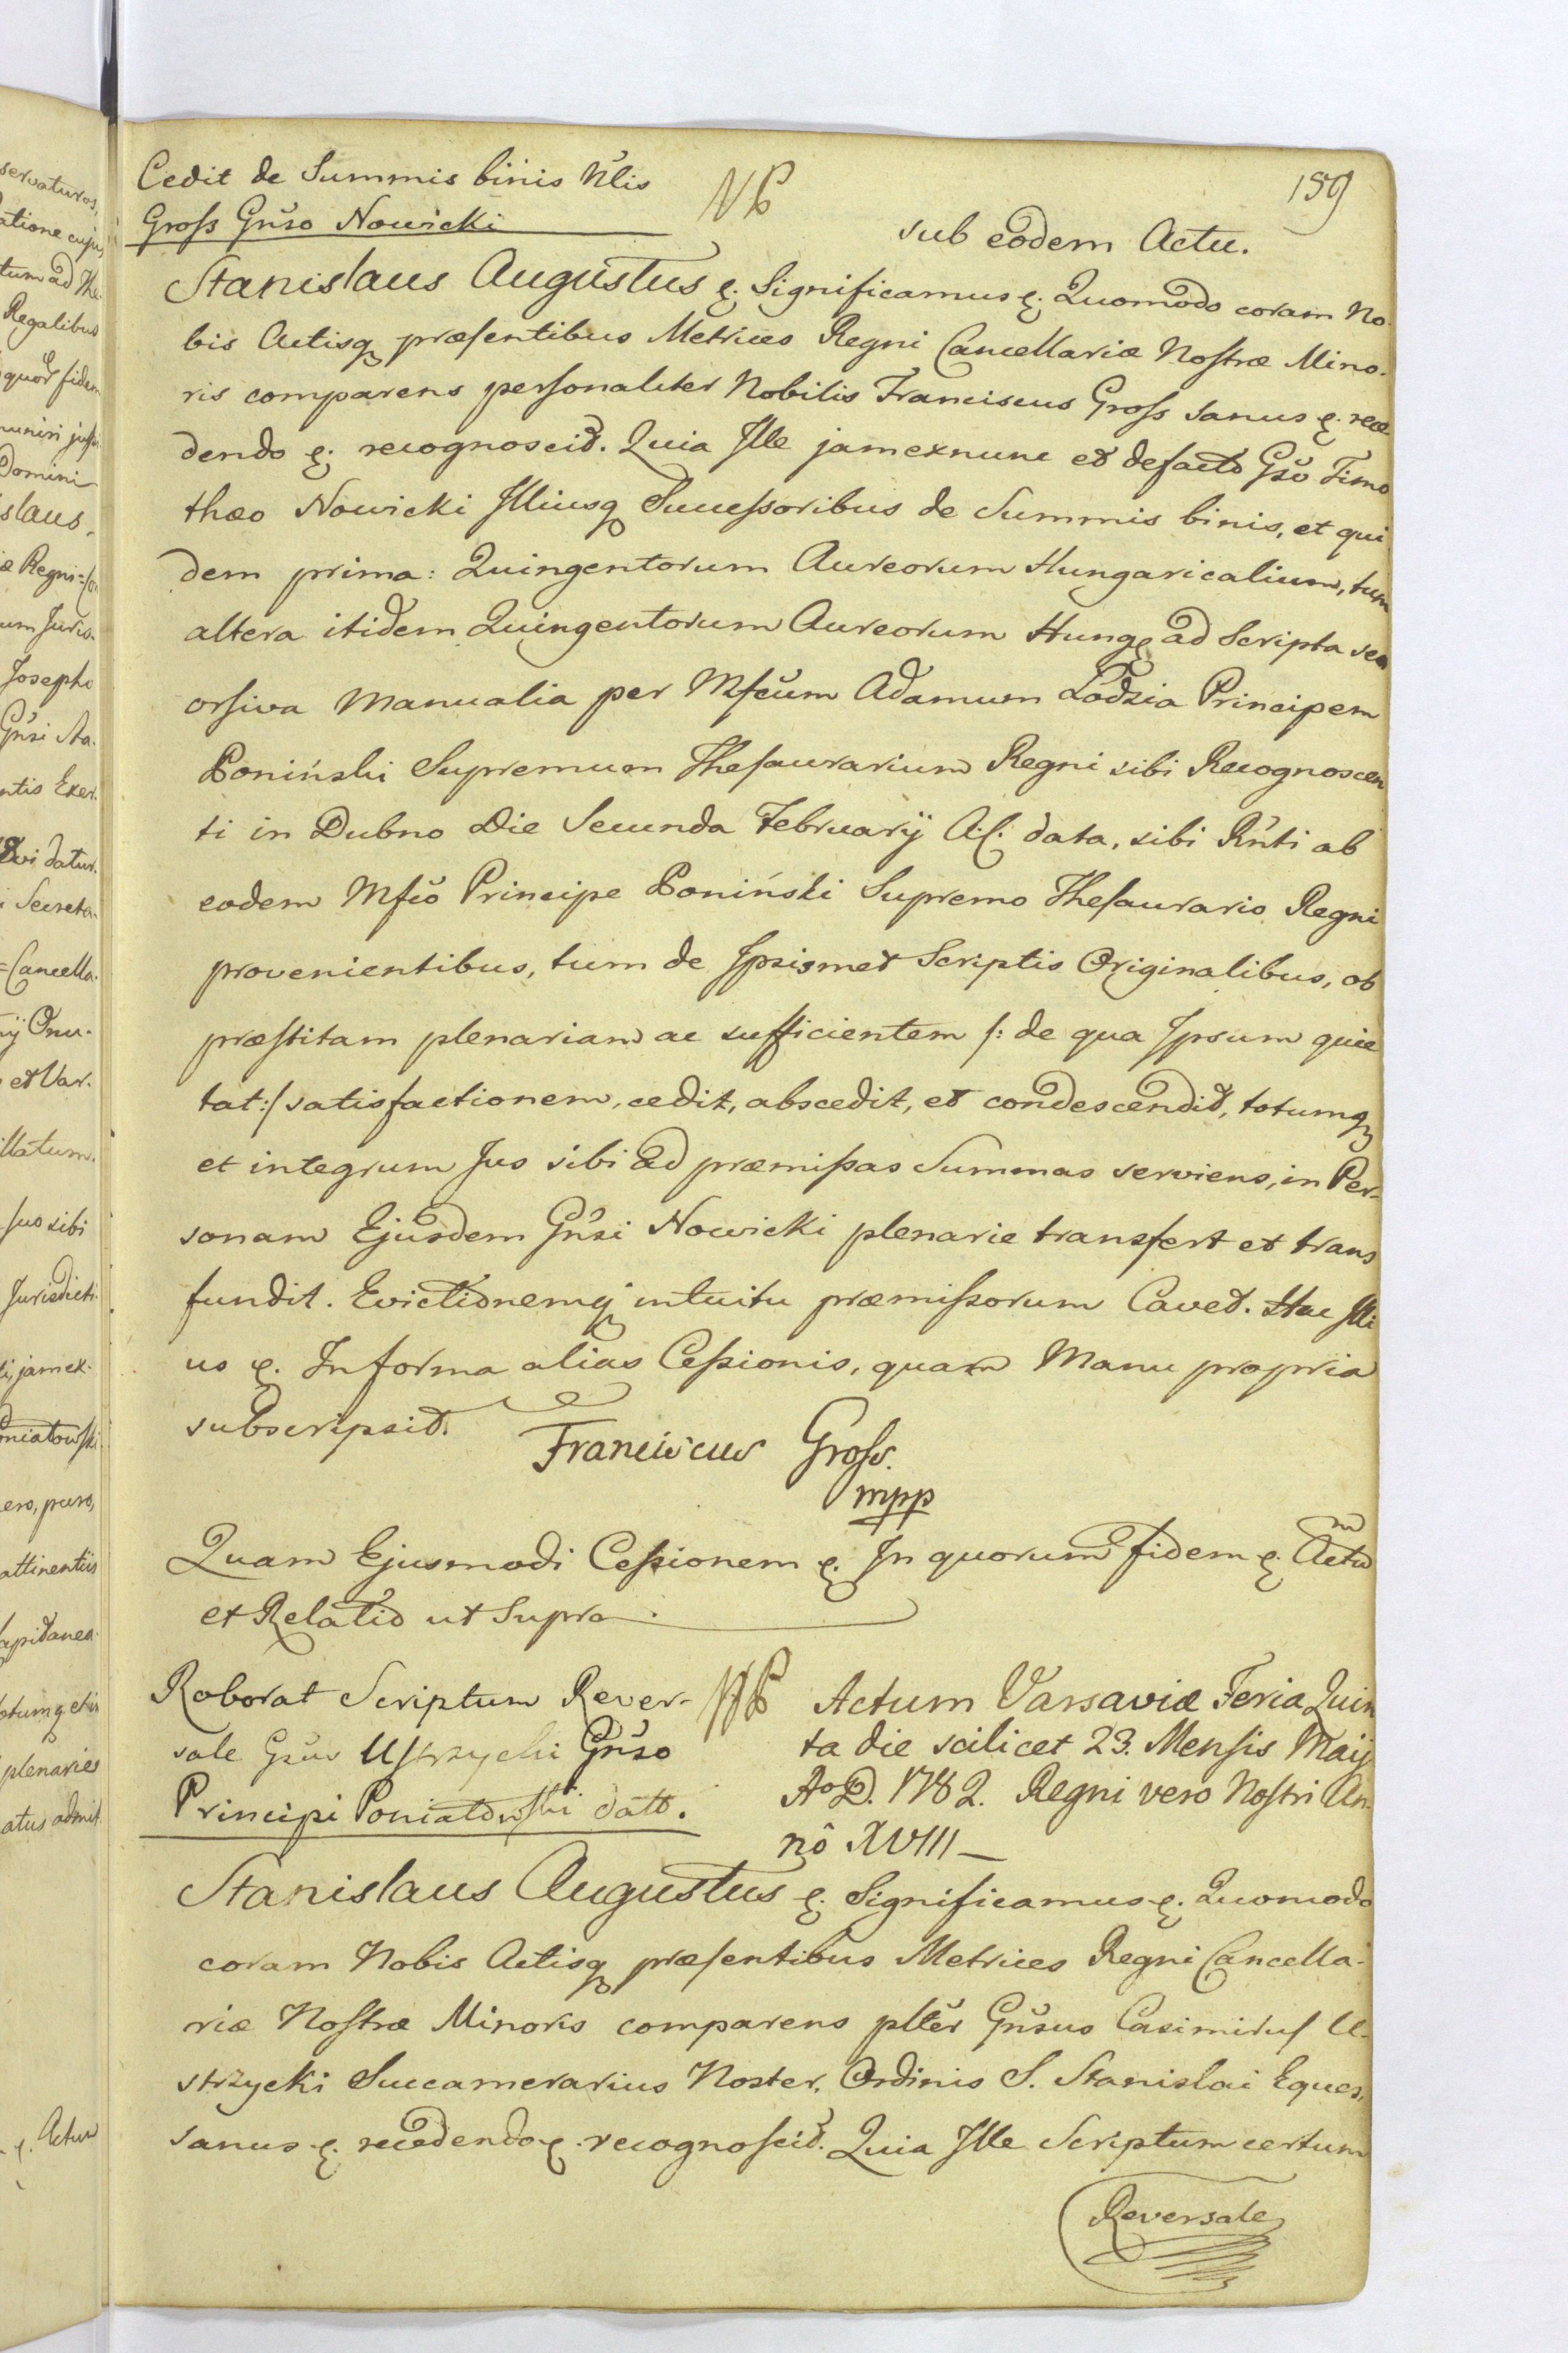 159
Cedit de Summis binis Nlis
Gross Gnso Nowicki
NB
sub eodem Actu.
Stanislaus Augustus &. Significamus &. Quomodo coram No-
bis Actisq præsentibus Metrices Regni Cancellariæ Nostræ Mino-
ris comparens personaliter Nobilis Franciscus Gross sanus &. rece
dendo &. recognoscit. Quia Ille jam exnunc et defacto Gso Timo
theo Nowicki Illiusq Successoribus de Summis binis, et qui
dem prima: Quingentorum Aureorum Hungaricalium, tum
altera itidem Quingentorum Aureorum Hung. ad Scripta se
orsiva Manualia per Mfcum Adamum Lodzia Principem
Poniński Supremum Thesaurarium Regni sibi Recognoscen
ti in Dubno Die Secunda Februarij A.C. data, sibi Rnti ab
eodem Mfco Principe Poniński Supremo Thesaurario Regni
provenientibus, tum de Ipsismet Scriptis Originalibus, ob
præstitam plenariam ac sufficientem /: de qua Ipsum quie
tat :/ satisfactionem, cedit, abscedit, et condescendit, totumq
et integrum Jus sibi ad præmissas Summas serviens, in Per-
sonam Ejusdem Gnsi Nowicki plenarie transfert et trans
fundit. Evictionemq intuitu præmissorum Cavet. Hac Illi
us &. In forma alias Cessionis, quam Manu propria
subscripsit.
Franciscus Gross.
mpp
Quam Ejusmodi Cessionem &. In quorum fidem &. Actum
et Relatio ut Supra.
Roborat Scriptum Rever-
sale Gsus Ustrzycki Gnso
Principi Poniatowski datt.
NB
Actum Varsaviæ Feria Quin
ta die scilicet 23. Mensis Maij
Ao D. 1782. Regni vero Nostri An-
nô XVIII
Stanislaus Augustus &. Significamus &. Quomodo
coram Nobis Actisq præsentibus Metrices Regni Cancella-
riæ Nostræ Minoris comparens plter Gnsus Casimirus U-
strzycki Succamerarius Noster, Ordinis S. Stanislai Eques,
sanus &. recedendo &. recognoscit. Quia Ille Scriptum certum
Reversale